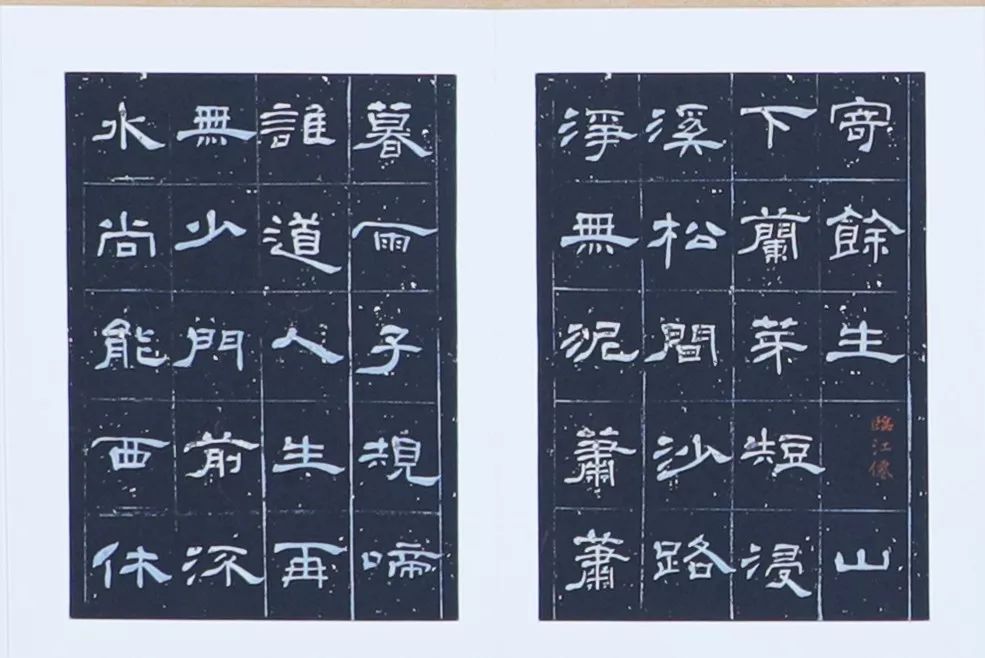 寄餘生
臨江僊
山
下蘭芽短浸
溪松間沙路
淨無泥蕭蕭
暮雨子規啼
誰道人生再
無少門前流
水尚能西休